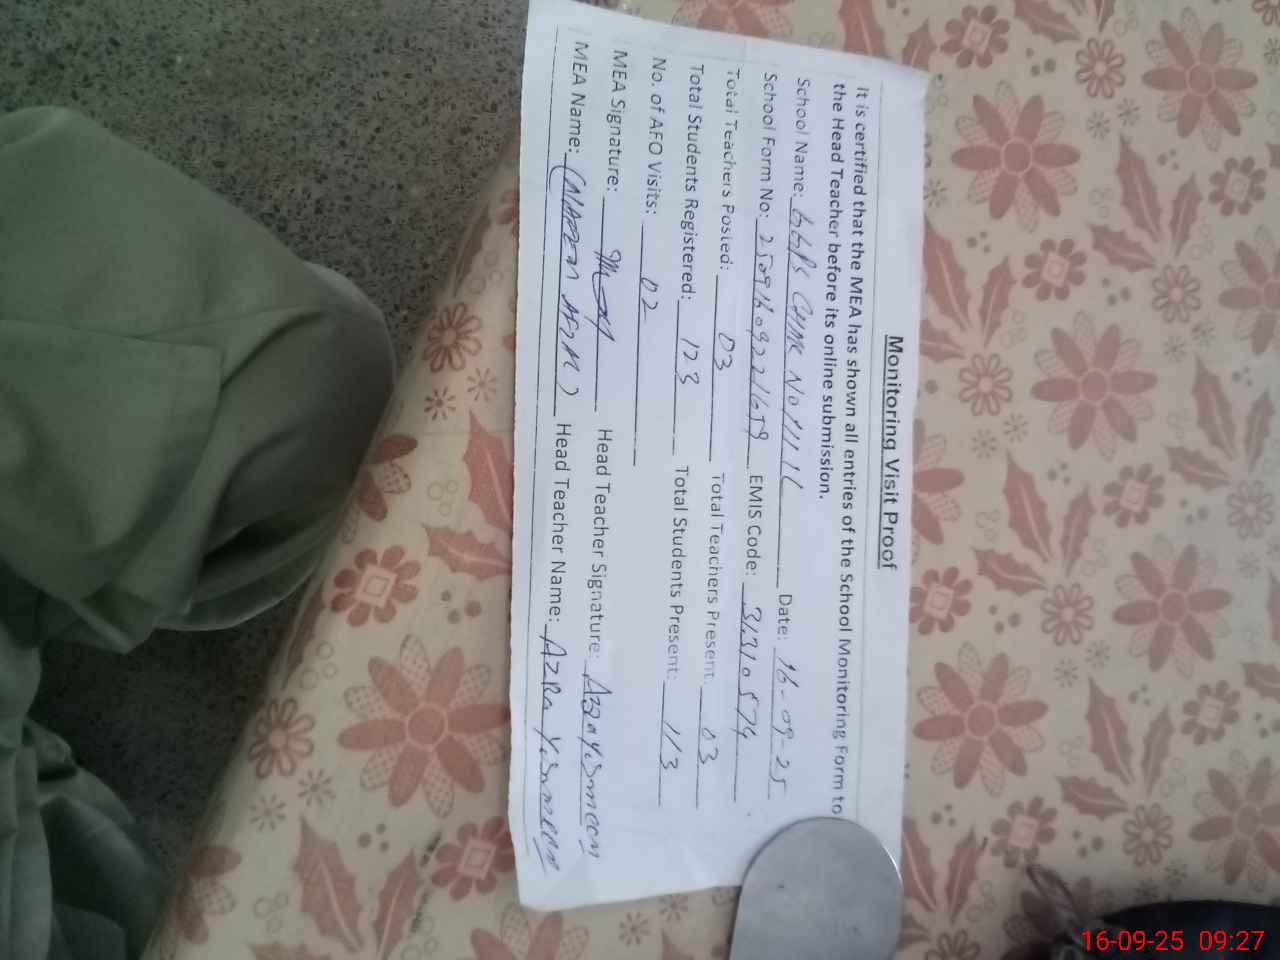 Monitoring Visit Proof
It is certified that the MEA has shown all entries of the School Monitoring Form to
the Head Teacher before its online submission.
School Name: GGPS CHAK No 111 1L Date: 16-09-25
School Form No: EMIS Code: 31310574
Total Teachers Posted: 03 Total Teachers Present: 03
Total Students Registered: 123 Total Students Present: 113
No. of AEO Visits: 02
MEA Signature: Head Teacher Signature: Azra Yasmeen
MEA Name: Head Teacher Name: AZRa Yasmeen
16-09-25 09:27